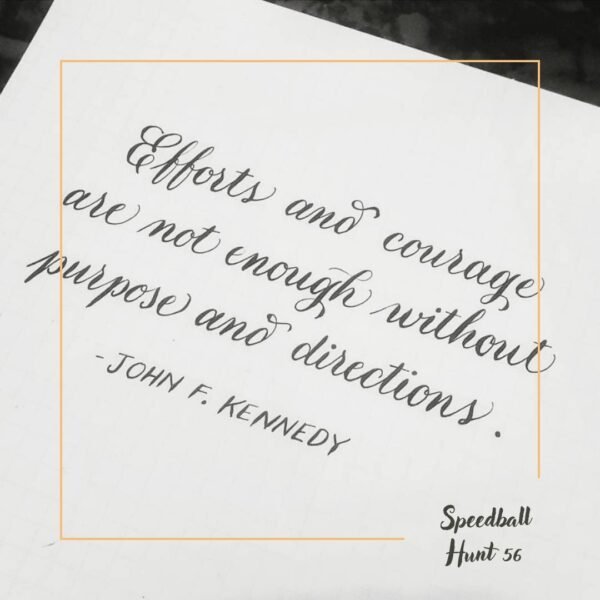 Efforts and courage
are not enough without
purpose and directions.
-JOHN F. KENNEDY
Speedball
Hunt 56